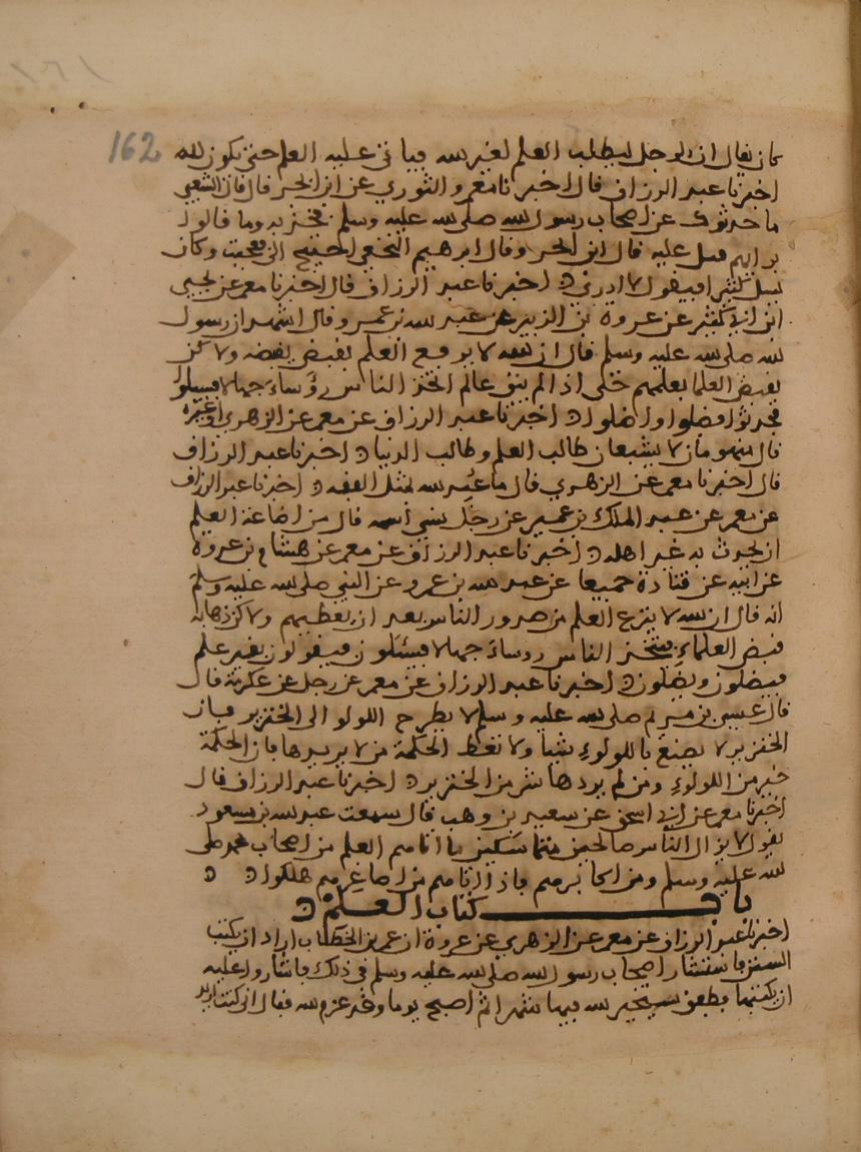 162
كان يقال ان الرجل ليطلب العلم لغير الله فيابى عليه العلم حتى يكون لله
اخبرنا عبد الرزاق قال اخبرنا معمر و الثوري عن ابن ابجر قال قال الشعبي
ما حدثوك عن اصحاب رسول الله صلى الله عليه وسلم فخذ به وما قالوا
برايهم فبل عليه قال ابن ابجر وقال ابرهيم النخعي الى وكان
يسل كثيرا فيقول لا ادري ه اخبرنا عبد الرزاق قال اخبرنا معمر عن يحيى
ابن ابي كثير عن عروة بن الزبير عن عبد الله بن عمرو قال اشهد ان رسول
الله صلى الله عليه وسلم قال ان الله لا يرفع العلم بقبض يقبضه ولاكن
يقبض العلما بعلمهم حتى اذا لم يبق عالم اتخذ الناس رؤساء جهالا فيسلوا
فحدثوا فضلوا واضلوا ه اخبرنا عبد الرزاق عن معمر عن الزهري او غيره
قال منهومان لا يشبعان طالب العلم وطالب الدنيا ه اخبرنا عبد الرزاق
قال اخبرنا معمر عن الزهري قال ما عبد الله بمثل الفقه ه اخبرنا عبد الرزاق
عن معمر عن عبد الملك بن عمير عن رجل قال من اضاعة العلم
ان يحدث به غير اهله ه اخبرنا عبد الرزاق عن معمر عن هشام بن عروة
عن ابيه عن قتادة جميعا عن عبد الله بن عمرو عن النبي صلى الله عليه وسلم
انه قال ان الله لا ينزع العلم من صدور الناس بعد ان يعطيهم ولاكن ذهابه
قبض العلماء فيتخذ الناس روساء جهالا فيسئلون فيقولون بغير علم
فيضلون ويضلون ه اخبرنا عبد الرزاق عن معمر عن رجل عن عكرمة قال
قال عيسى بن مريم صلى الله عليه وسلم لا يطرح اللولو الى الخنزير فان
الخنزير لا يصنع باللولوء شيا ولا تعط الحكمة من لا يريدها فان الحكمة
خير من اللولوء ومن لم يردها شر من الخنزير ه اخبرنا عبد الرزاق قال
اخبرنا معمر عن ابي اسحق عن سعيد بن وهب قال سمعت عبد الله بن مسعود
يقول لا يزال الناس صالحين متماسكين ما اتاهم العلم من اصحاب محمد صلى
الله عليه وسلم ومن اكابرهم فاذا اتاهم من اصاغرهم هلكوا ه ه
باب كتاب العلم ه
اخبرنا عبد الرزاق عن معمر عن الزهري عن عروة ان عمر بن الخطاب اراد ان يكتب
السنن فاستشار اصحاب رسول الله صلى الله عليه وسلم في ذلك فاشاروا عليه
ان يكتبها فطفق يستخير الله فيها شهرا ثم اصبح يوما وقد عزم الله فقال اني كنت اريد